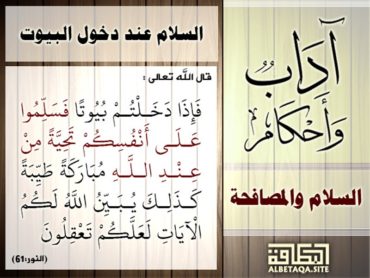 السلام عند دخول البيوت
قال الله تعالى :
فَإِذَا دَخَلْتُمْ بُيُوتًا فَسَلِّمُوا
عَلَى أَنْفُسِكُمْ تَحِيَّةً مِنْ
عِنْدِ اللَّهِ مُبَارَكَةً طَيِّبَةً
كَذَلِكَ يُبَيِّنُ اللَّهُ لَكُمُ
الْآيَاتِ لَعَلَّكُمْ تَعْقِلُونَ
(النور:61)
آدَابٌ
وَأَحْكَام
السلام والمصافحة
البطاقة
ALBETAQA.SITE